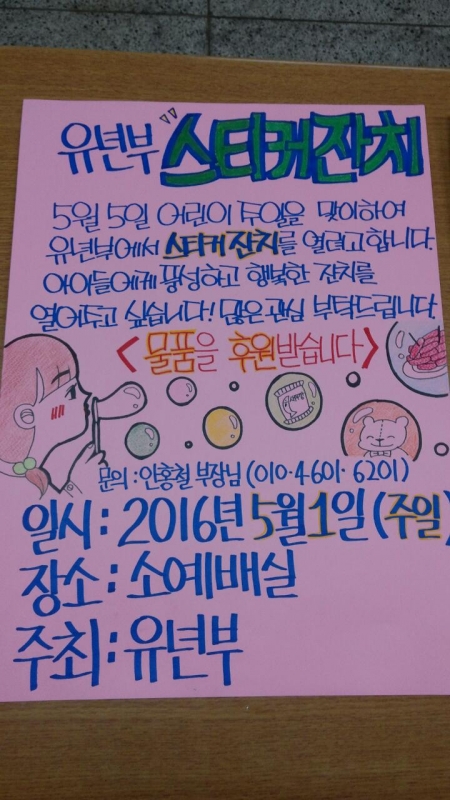 유년부 "스티커잔치
5월 5일 어린이 주일을 맞이하여
유년부에서 스티커 잔치를 열려고 합니다.
아이들에게 풍성하고 행복한 잔치를
열어주고 싶습니다! 많은 관심 부탁드립니다.
<물품을 후원받습니다>
문의 : 안홍철 부장님 (010·4601·6201)
일시 : 2016년 5월 1일 (주일)
장소 : 소예배실
주최 : 유년부